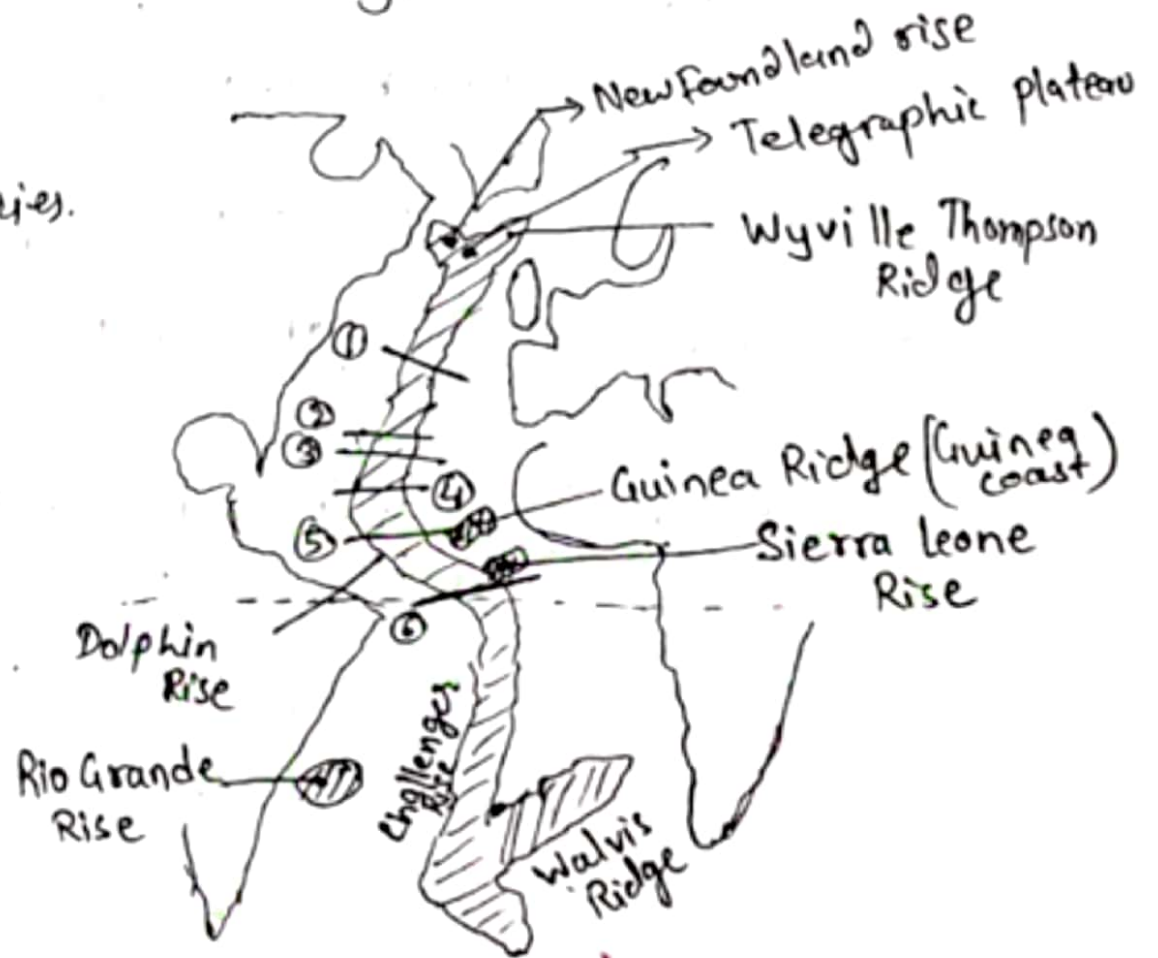 Newfoundland rise
Telegraphic plateau
ries.
Wyville Thompson
Ridge
①
②
③
④
Guinea Ridge (Guinea
coast)
⑤
Sierra leone
Rise
⑥
Dolphin
Rise
Challenger
Rise
Rio Grande
Rise
Walvis
Ridge